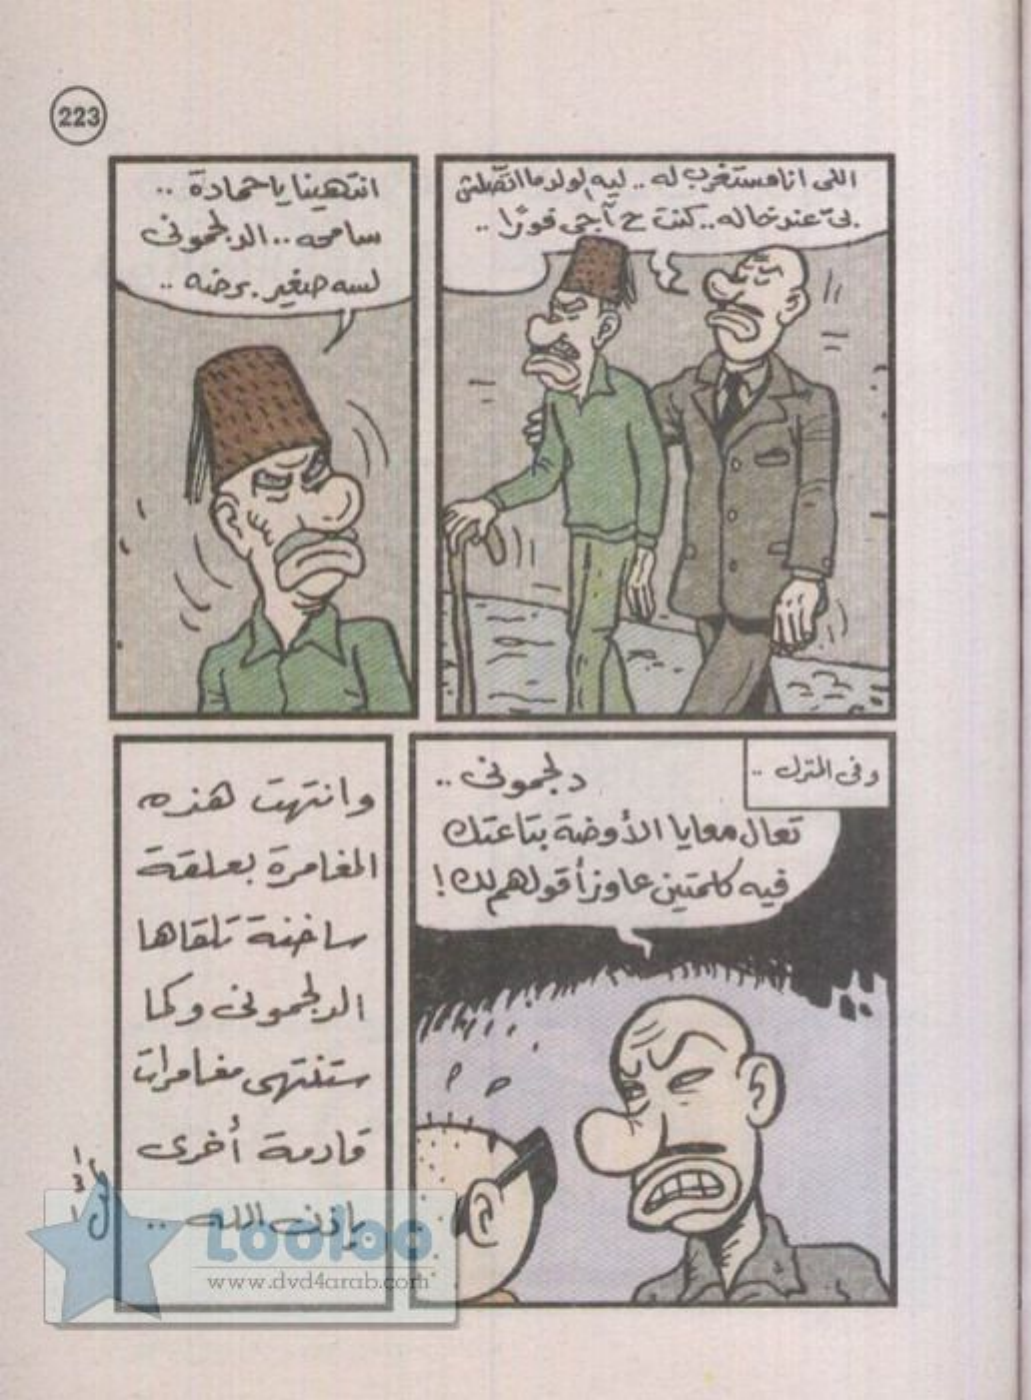 223
اللى انا مستغرب له .. ليه لولد ما اتصلش
بىّ عند خاله .. كنت ح آجى فورًا ..
انتهينا يا حمادة ..
سامحه .. الدلجمونى
لسه صغير برضه ..
وفى المنزل ..
دلجمونى ..
تعال معايا الأوضة بتاعتك
فيه كلمتين عاوز أقولهم لك !
وانتهت هذه
المغامرة بعلقة
ساخنة تلقاها
الدلجمونى وكما
ستنتهى مغامرات
قادمة أخرى
بإذن الله ..
Looloo
www.dvd4arab.com